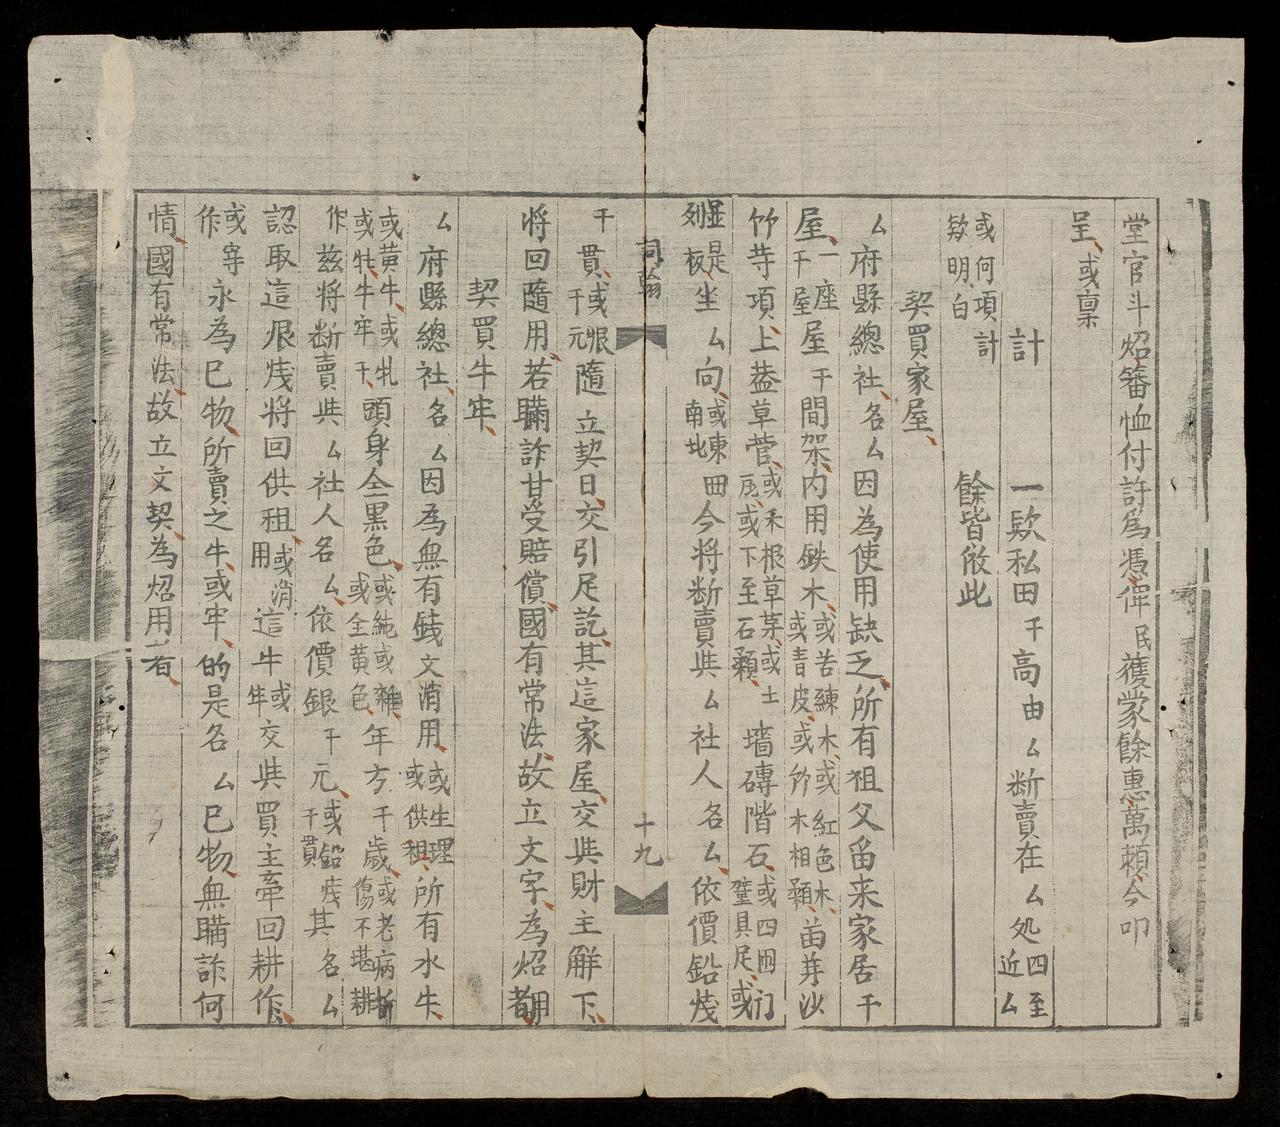 堂官斗炤籓恤付許為憑俾民獲蒙餘惠萬頼今叩
呈或禀
計 一欵私田千高由厶断賣在厶処四至近厶
或何項計欵明白 餘皆倣此
契買家屋
厶府縣總社名厶因為使用缺乏所有祖父留来家居千
屋一座千屋屋千間架内用鉄木或苦練木或紅色木或青皮或竹木相類茁芽沙
竹等項上葢草菅或禾根草葉或土瓦或下至石類墻磚階石或四囲门璧具足或
並是列板坐厶向或東南北田今将断賣與厶社人名厶依價鉛㦮
千貫或限千元隨立契日交引足訖其這家屋交與財主解下
将回隨用若瞞詐甘受賠償國有常法故立文字為炤用者
契買牛牢
厶府縣總社名厶因為無有錢文消用或生理或供租所有水牛
或黄牛或牝或牡牛牢千頭身全黒色或純或雜或全黄色年方千歳或老病斯傷不堪耕
作玆将断賣與厶社人名厶依價銀千元或鉛千貫㦮其名厶
認取這限㦮将回供租或消用這牛或牢交與買主牽回耕作
或寧作永為己物所賣之牛或牢的是名厶己物無瞒詐何
情國有常法故立文契為炤用者
詞翰
十九